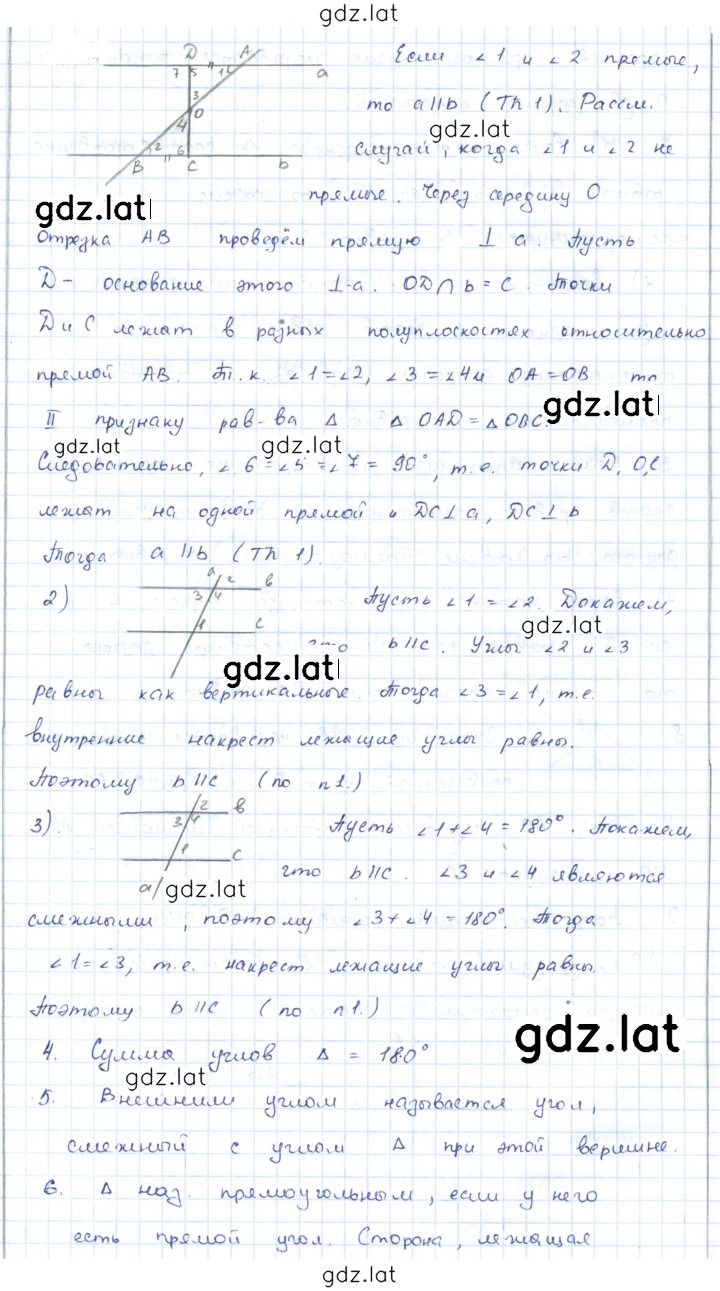 gdz.lat
D A
7 5 1 a
3
O
4
2 6
B C b
Если ∠1 и ∠2 прямые,
то a||b (Th 1). Рассм.
gdz.lat
случай, когда ∠1 и ∠2 не
прямые. Через середину O
gdz.lat
Отрезка AB проведём прямую ⊥ a. Пусть
D - основание этого ⊥-а. OD∩b=C. Точки
D и C лежат в разных полуплоскостях относительно
прямой AB. Т.к. ∠1=∠2, ∠3=∠4 и OA=OB то
gdz.lat
II признаку рав-ва Δ Δ OAD=Δ OBC.
gdz.lat gdz.lat
Следовательно, ∠6=∠5=∠7=90°, т.е. точки D, O, C
лежат на одной прямой и DC⊥a, DC⊥b
Тогда a||b (Th 1).
2) a 2 b
3 4
1 c
Пусть ∠1=∠2. Докажем,
gdz.lat
что b||c. Углы ∠2 и ∠3
gdz.lat
равны как вертикальные. Тогда ∠3=∠1, т.е.
внутренние накрест лежащие углы равны.
Поэтому b||c (по п1.)
3) 2 b
3 4
1 c
a
Пусть ∠1+∠4=180°. Покажем,
что b||c. ∠3 и ∠4 являются
gdz.lat
смежными, поэтому ∠3+∠4=180°. Тогда
∠1=∠3, т.е. накрест лежащие углы равны.
Поэтому b||c (по п1.)
gdz.lat
4. Сумма углов Δ = 180°
gdz.lat
5. Внешним углом называется угол,
смежный с углом Δ при этой вершине.
6. Δ наз. прямоугольным, если у него
есть прямой угол. Сторона, лежащая
gdz.lat